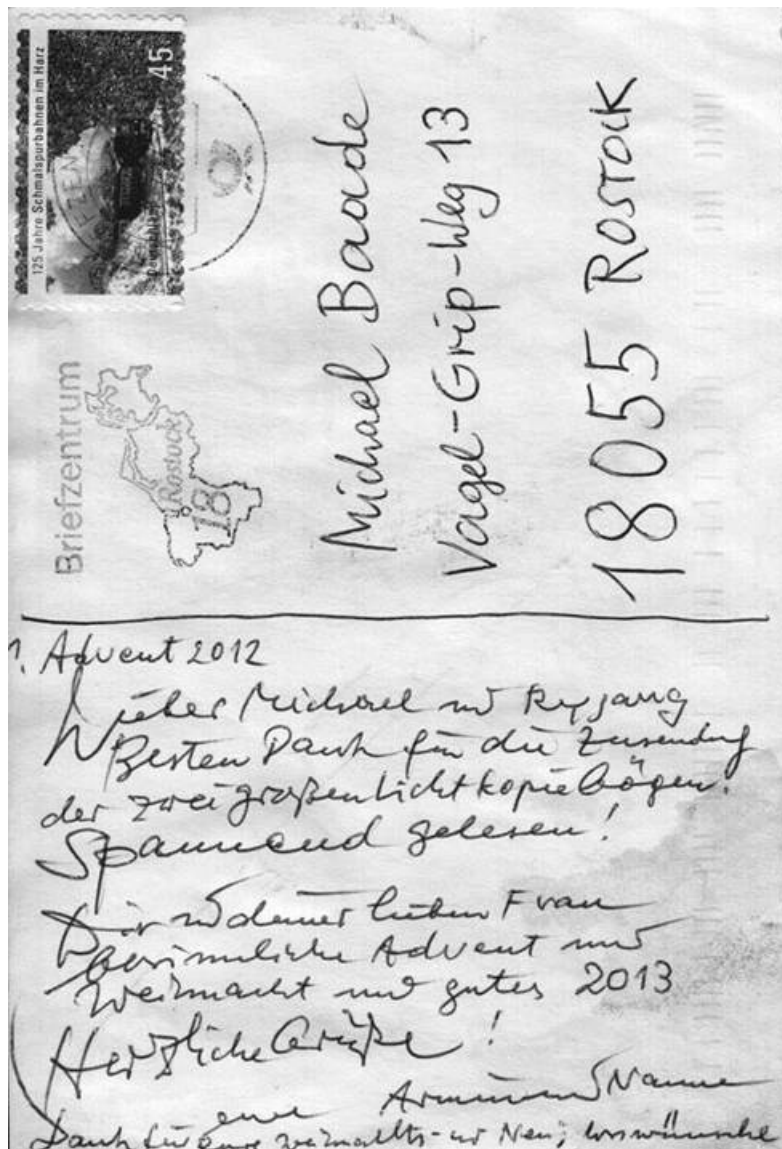 125 Jahre Schmalspurbahnen im Harz
45
Briefzentrum
Rostock
18
Michael Baade
Vagel-Grip-Weg 13
18055 ROSTOCK
1. Advent 2012
Lieber Michael und
Besten Dank für die Zusendung
der zwei großen Lichtkopiebögen.
Spannend gelesen!
Dir und deiner lieben Frau
besinnliche Advent und
Weihnacht und gutes 2013
Herzliche Grüße!
Armin
Dank für eure Weihnachts- und